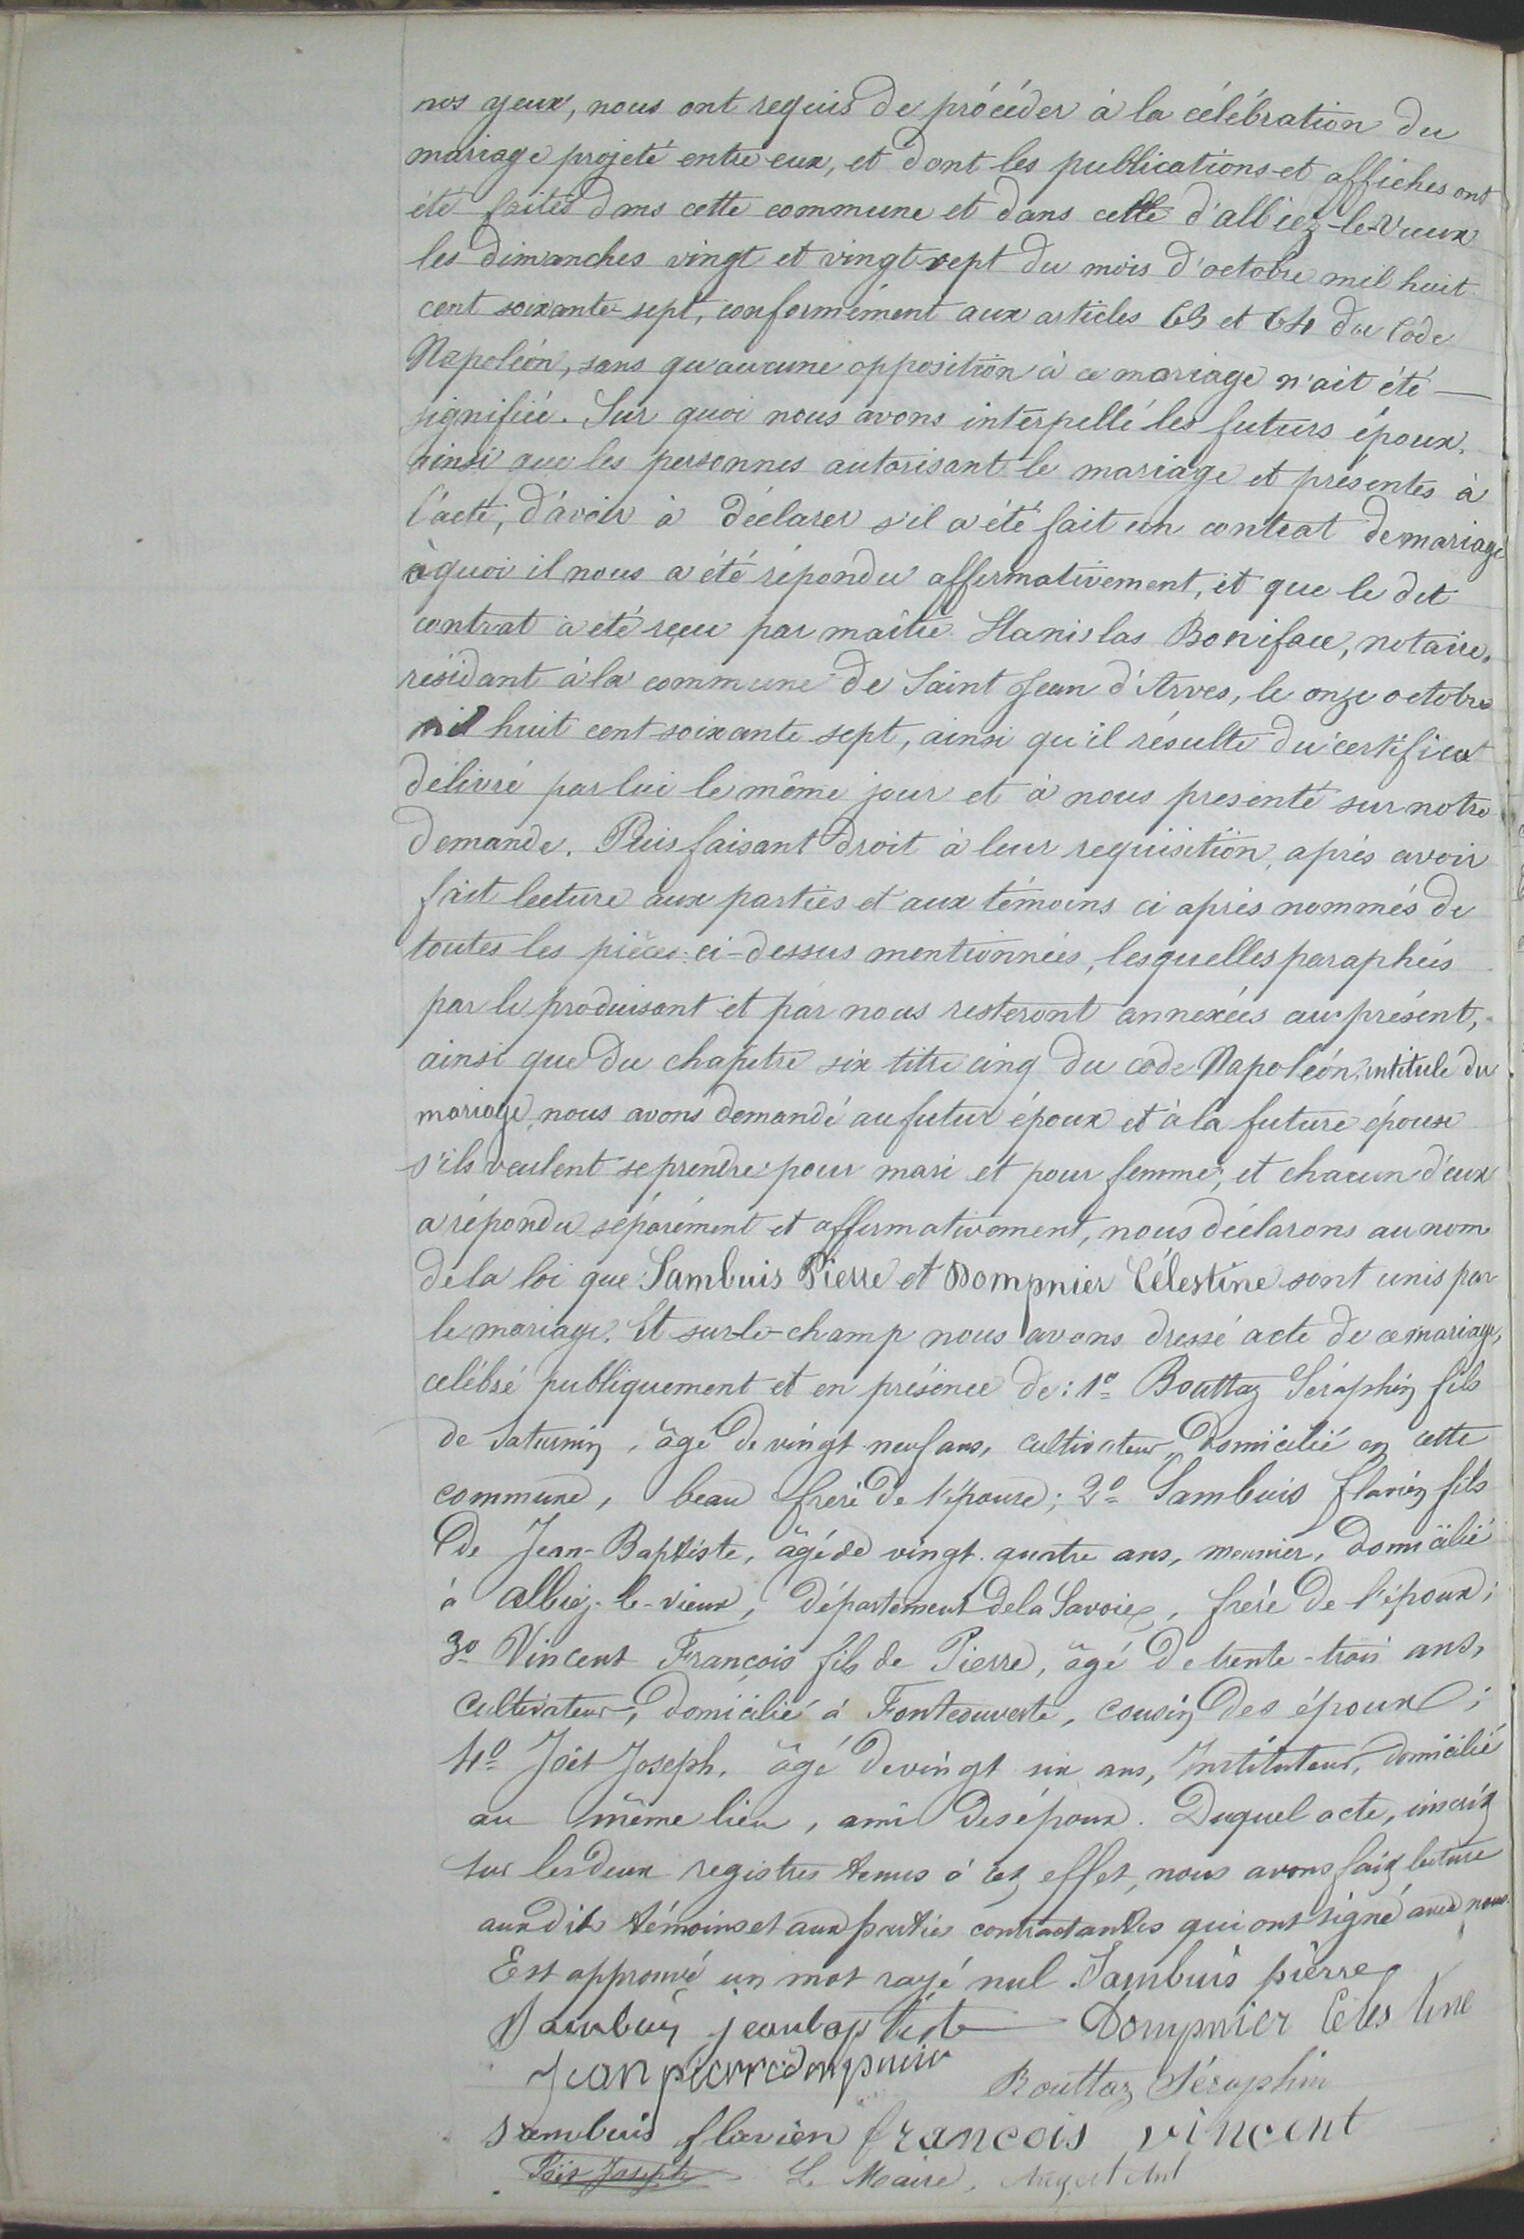 nos yeux, nous ont requis de procéder à la célébration du
mariage projeté entre eux, et dont les publications et affiches ont
été faites dans cette commune et dans celle d'albiez-le-vieux
les dimanches vingt et vingt sept du mois d'octobre mil huit
cent soixante sept, conformément aux articles 63 et 64 du Code
Napoléon, sans qu'aucune opposition à ce mariage n'ait été —
signifiée. Sur quoi nous avons interpellé les futurs époux,
ainsi que les personnes autorisant le mariage et présentes à
l'acte, d'avoir à déclarer s'il a été fait un contrat de mariage
à quoi il nous a été répondu affirmativement, et que le dit
contrat a été reçu par maître Stanislas Boniface, notaire,
résidant à la commune de Saint Jean d'Arves, le onze octobre
mil huit cent soixante sept, ainsi qu'il résulte du certificat
délivré par lui le même jour et à nous présenté sur notre
demande. Puis faisant droit à leur requisition, après avoir
fait lecture aux parties et aux témoins ci après nommés de
toutes les pièces ci-dessus mentionnées, lesquelles paraphées
par le produisant et par nous resteront annexées au présent,
ainsi que du chapitre six titre cinq du code Napoléon, intitulé du
mariage, nous avons demandé au futur époux et à la future épouse
s'ils veulent se prendre pour mari et pour femme; et chacun d'eux
a répondu séparément et affirmativement, nous déclarons au nom
de la loi que Sambuis Pierre et Dompnier Célestine sont unis par
le mariage. Et sur-le-champ nous avons dressé acte de ce mariage,
célébré publiquement et en présence de: 1º Bouttaz Séraphin fils
de Saturnin, âgé de vingt neuf ans, cultivateur, domicilié en cette
commune, beau frere de l'épouse; 2º Sambuis flavien fils
de Jean-Baptiste, âgé de vingt quatre ans, meunier, domicilié
à albiez-le-vieux, département de la Savoie, frère de l'époux;
3º Vincent François fils de Pierre, âgé de trente-trois ans,
cultivateur, domicilié à Fontcouverte, cousin des époux;
4º Joët Joseph, âgé de vingt six ans, Instituteur, domicilié
au même lieu, ami des époux. Duquel acte, inscrit
sur les deux registres tenus à cet effet, nous avons fait lecture
aux dits témoins et aux partie contractantes qui ont signé avec nous.
Est approuvé un mot rayé nul. Sambuis pierre
Sambuis jean baptiste Dompnier Célestine
Jean pierre dompnier Bouttaz Séraphin
Sambuis flavien françois vincent
Joët Joseph Le Maire,